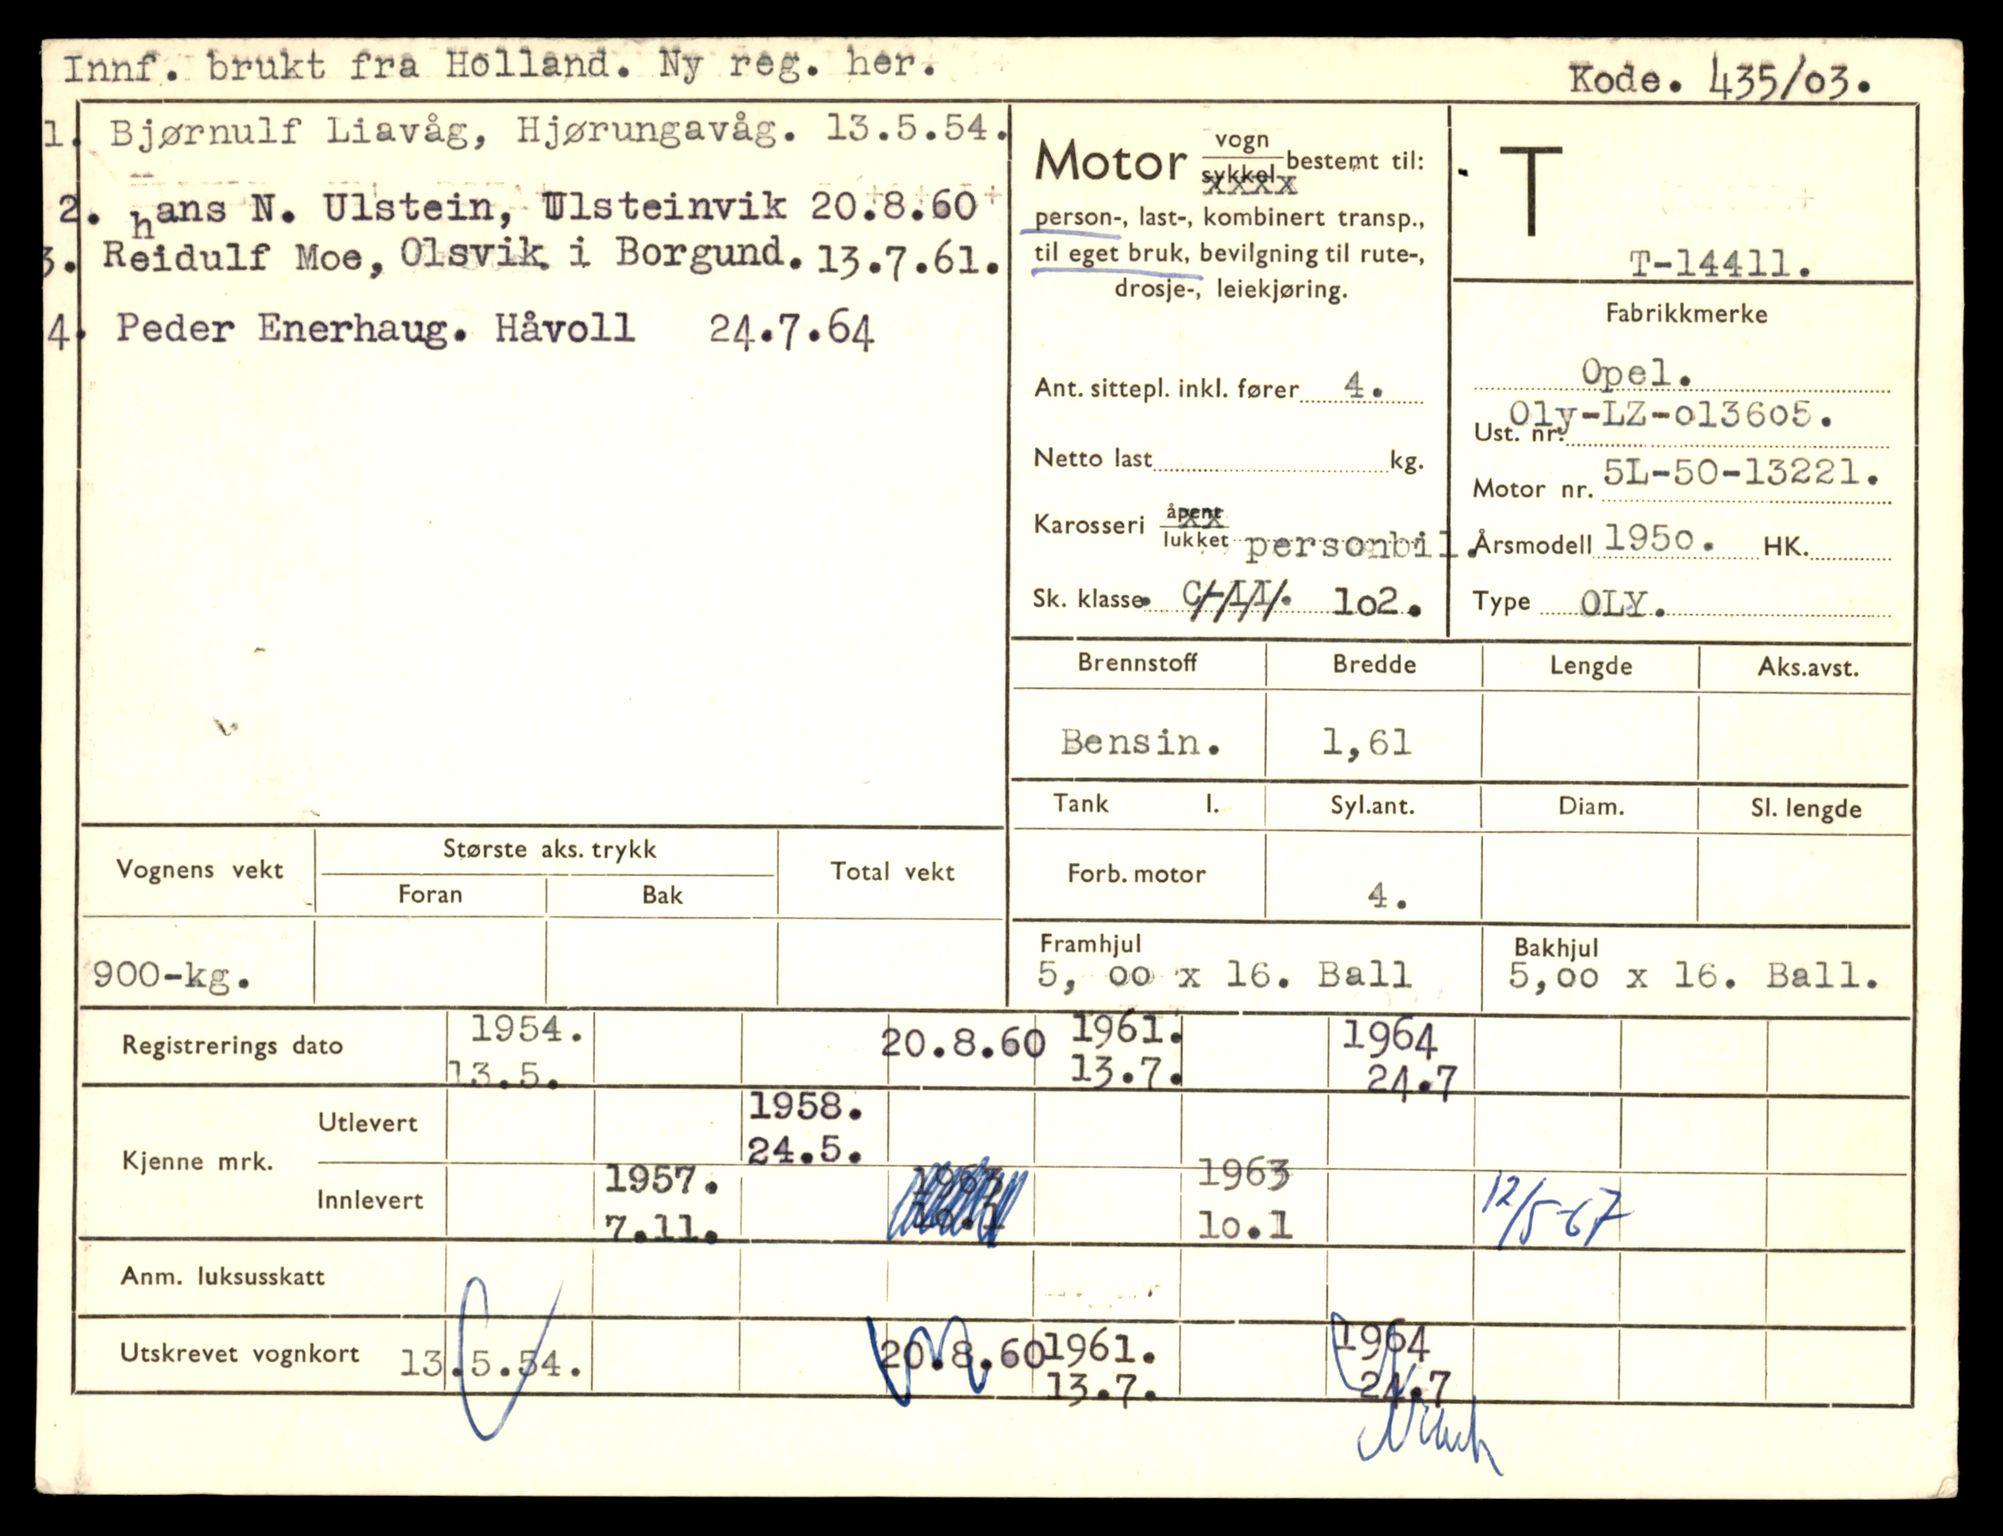 Innf. brukt fra Holland. Ny reg. her.
Kode. 435/03.
1. Bjørnulf Liavåg, Hjørungavåg. 13.5.54.
2. hans N. Ulstein, Ulsteinvik 20.8.60
3. Reidulf Moe, Olsvik i Borgund. 13.7.61.
4. Peder Enerhaug. Håvoll 24.7.64
Motor vogn
sykkel bestemt til:
xxxx
person-, last-, kombinert transp.,
til eget bruk, bevilgning til rute-,
drosje-, leiekjøring.
Ant. sittepl. inkl. fører 4.
Netto last kg.
Karosseri åpent
lukket personbil.
Sk. klasse. C-II. 1o2.
T
T-14411.
Fabrikkmerke
Opel.
Ust. nr. Oly-LZ-o136o5.
Motor nr. 5L-50-13221.
Årsmodell 195o. HK.
Type OLY.
Brennstoff Bredde Lengde Aks.avst.
Bensin. 1,61
Tank l. Syl.ant. Diam. Sl. lengde
Forb. motor 4.
Framhjul Bakhjul
5, oo x 16. Ball 5,oo x 16. Ball.
Vognens vekt Største aks. trykk Total vekt
Foran Bak
900-kg.
Registrerings dato 1954. 20.8.60 1961. 1964
13.5. 13.7. 24.7
Kjenne mrk.
Utlevert 1958.
24.5.
Innlevert 1957. 1963 1963 12/5-67
7.11. 10.1 1o.1
Anm. luksusskatt
Utskrevet vognkort 13.5.54. 20.8.60 1961. 1964
13.7. 24.7